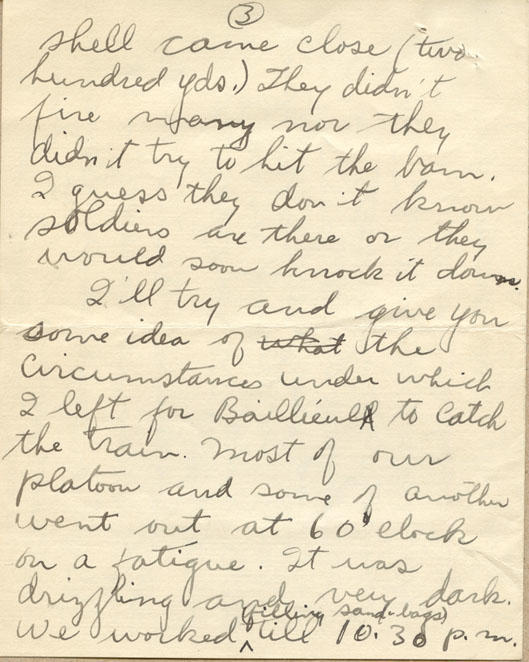 3
shell came close (two
hundred yds.) They didn't
fire many nor they
didn't try to hit the barn.
I guess they don't know
soldiers are there or they
would soon knock it down.
I'll try and give you
some idea of what the
circumstances under which
I left for Baillieull to catch
the train. Most of our
platoon and some of another
went out at 6 o'clock
on a fatigue. It was
drizzling and very dark.
(filling sand-bags)
We worked till 10.30 p.m.